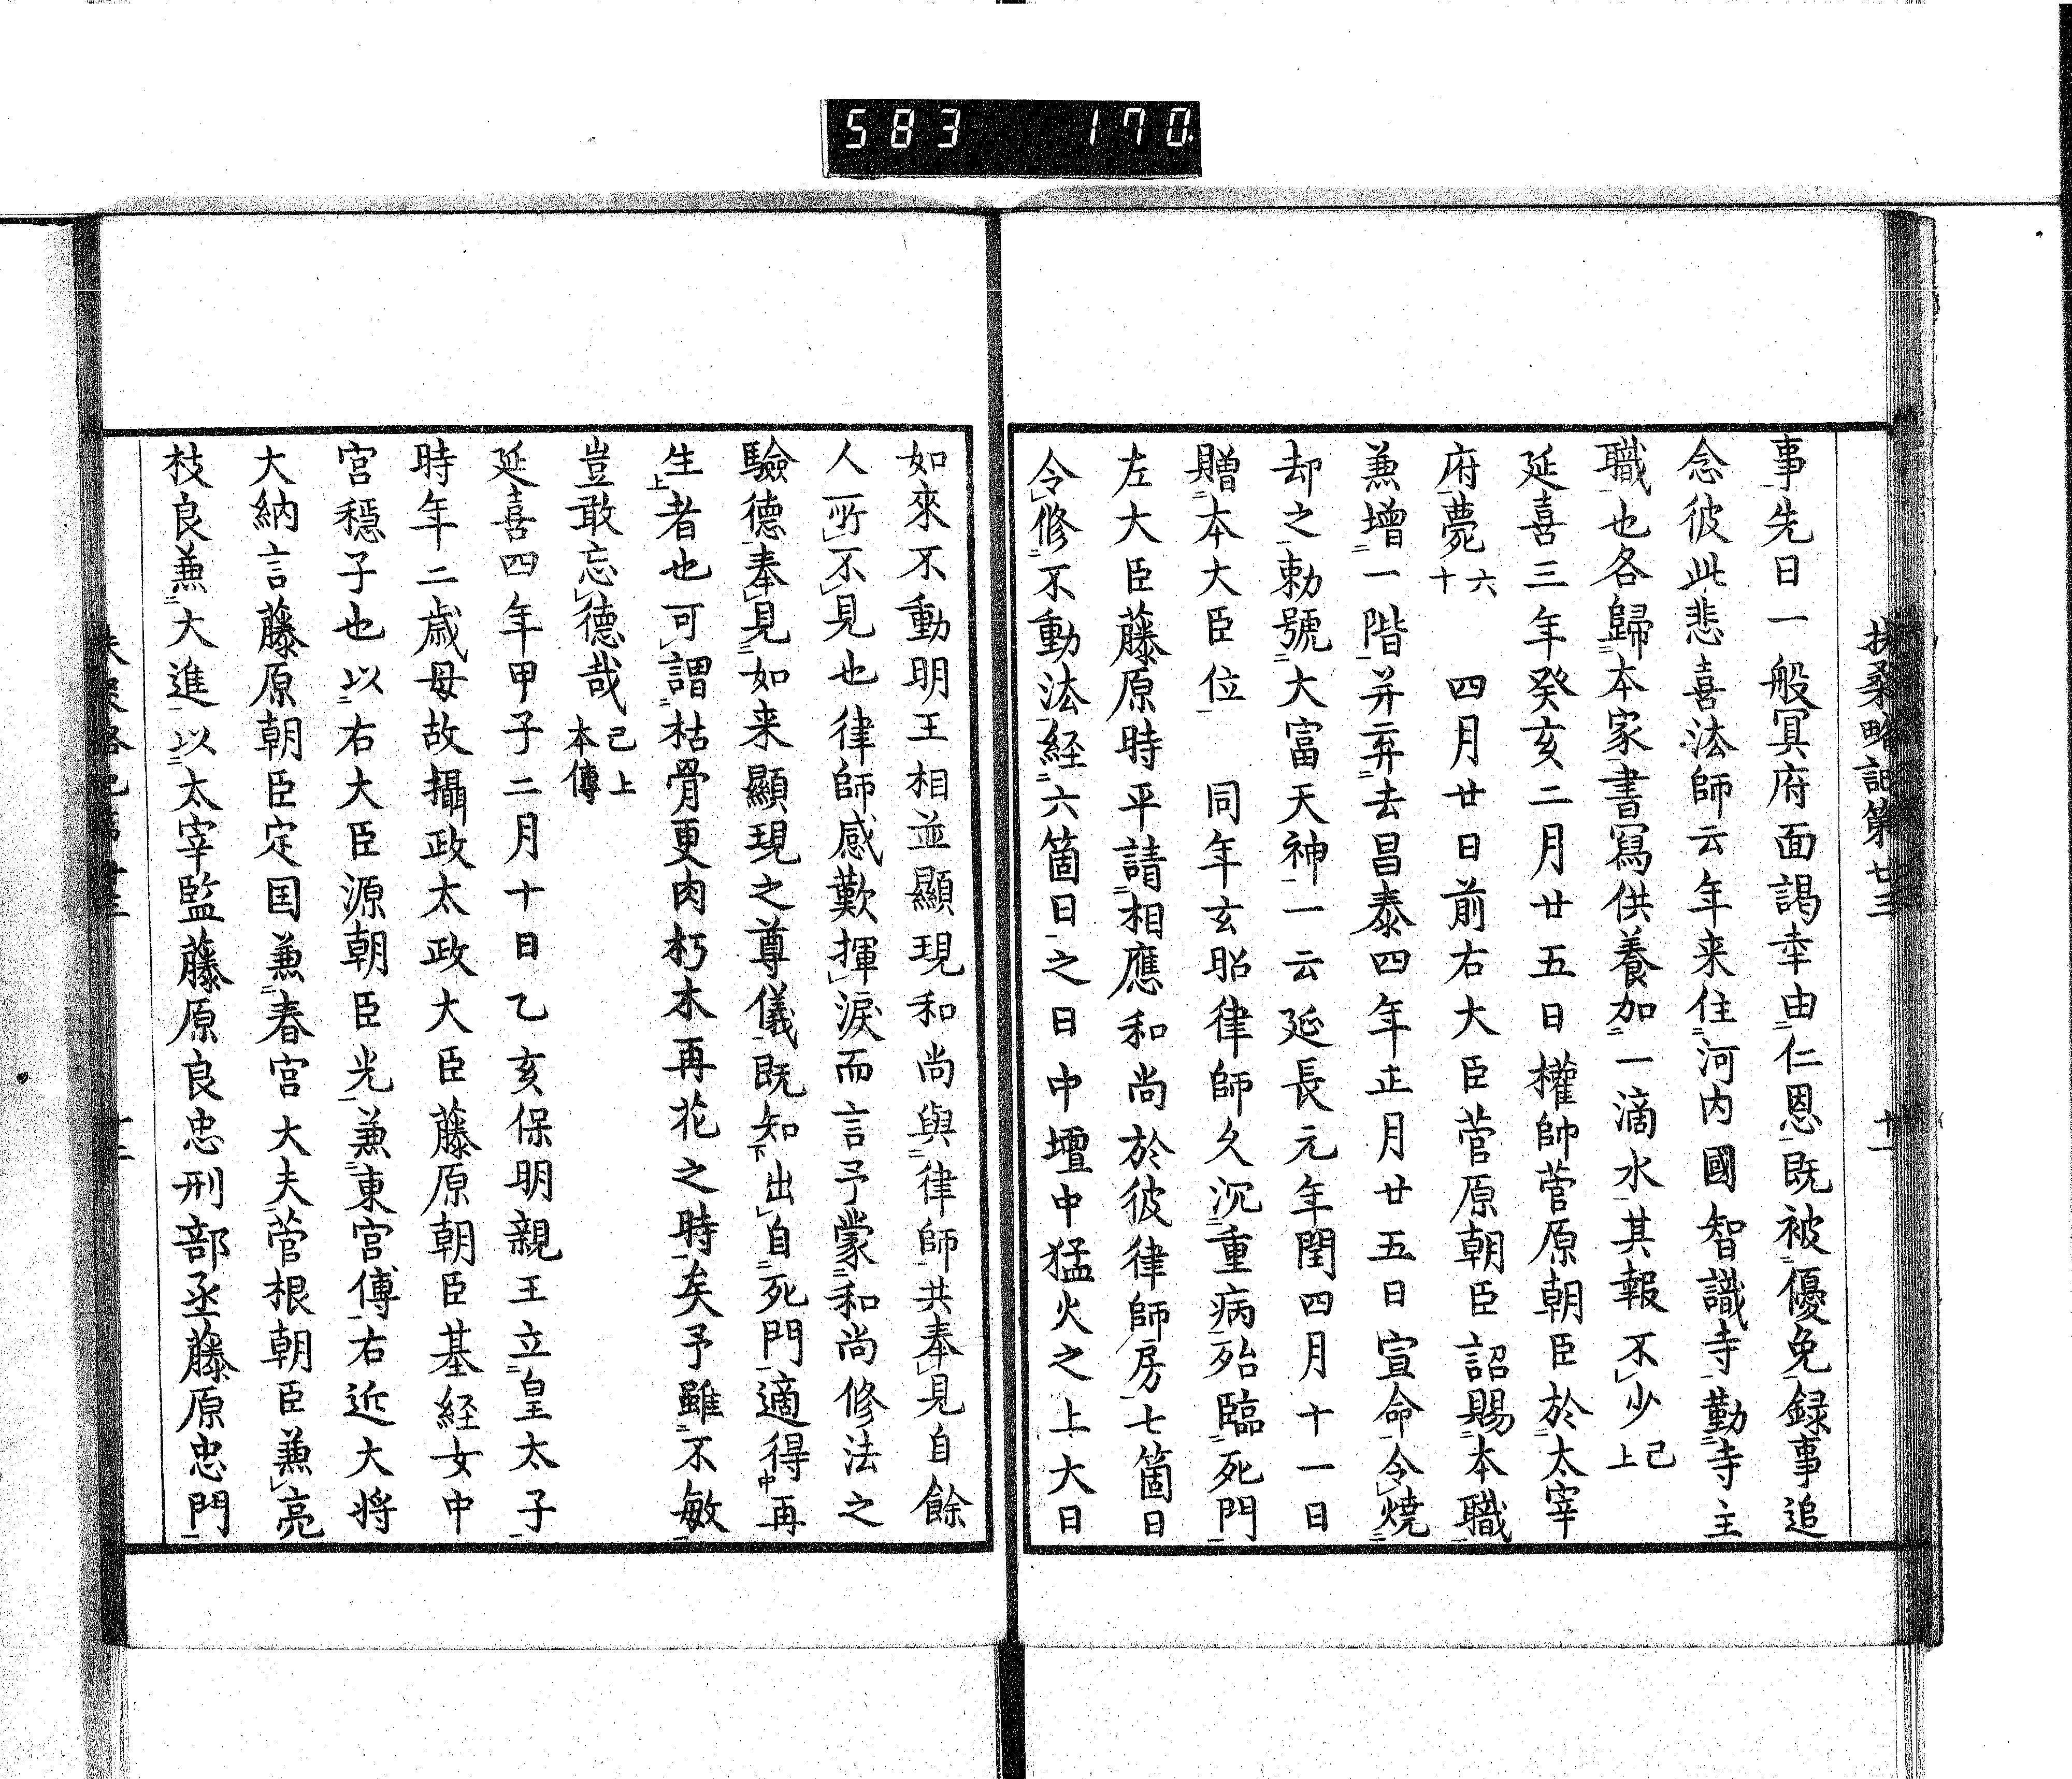 583 170
扶桑略記第廿三 十一
事先日一般冥府面謁幸由仁恩既被優免録事追
念彼此悲喜法師云年来住河内國智識寺勤寺主
職也各歸本家書寫供養加一滴水其報不少已上
延喜三年癸亥二月廿五日權帥菅原朝臣於太宰
府薨六十 四月廿日前右大臣菅原朝臣詔賜本職
兼增一階并弃去昌泰四年正月廿五日宣命令燒
却之勅號大富天神一云延長元年閏四月十一日
贈本大臣位 同年玄昭律師久沉重病殆臨死門
左大臣藤原時平請相應和尚於彼律師房七箇日
令修不動法経六箇日之日中壇中猛火之上大日
如來不動明王相並顯現和尚與律師共奉見自餘
人所不見也律師感歎揮淚而言予蒙和尚修法之
驗德奉見如来顯現之尊儀既知出自死門適得再
生者也可謂枯骨更肉朽木再花之時矣予雖不敏
豈敢忘德哉已上本傳
延喜四年甲子二月十日乙亥保明親王立皇太子
時年二歳母故攝政太政大臣藤原朝臣基経女中
宮穩子也以右大臣源朝臣光兼東宮傅右近大将
大納言藤原朝臣定国兼春宮大夫菅根朝臣兼亮
枝良兼大進以太宰監藤原良忠刑部丞藤原忠門